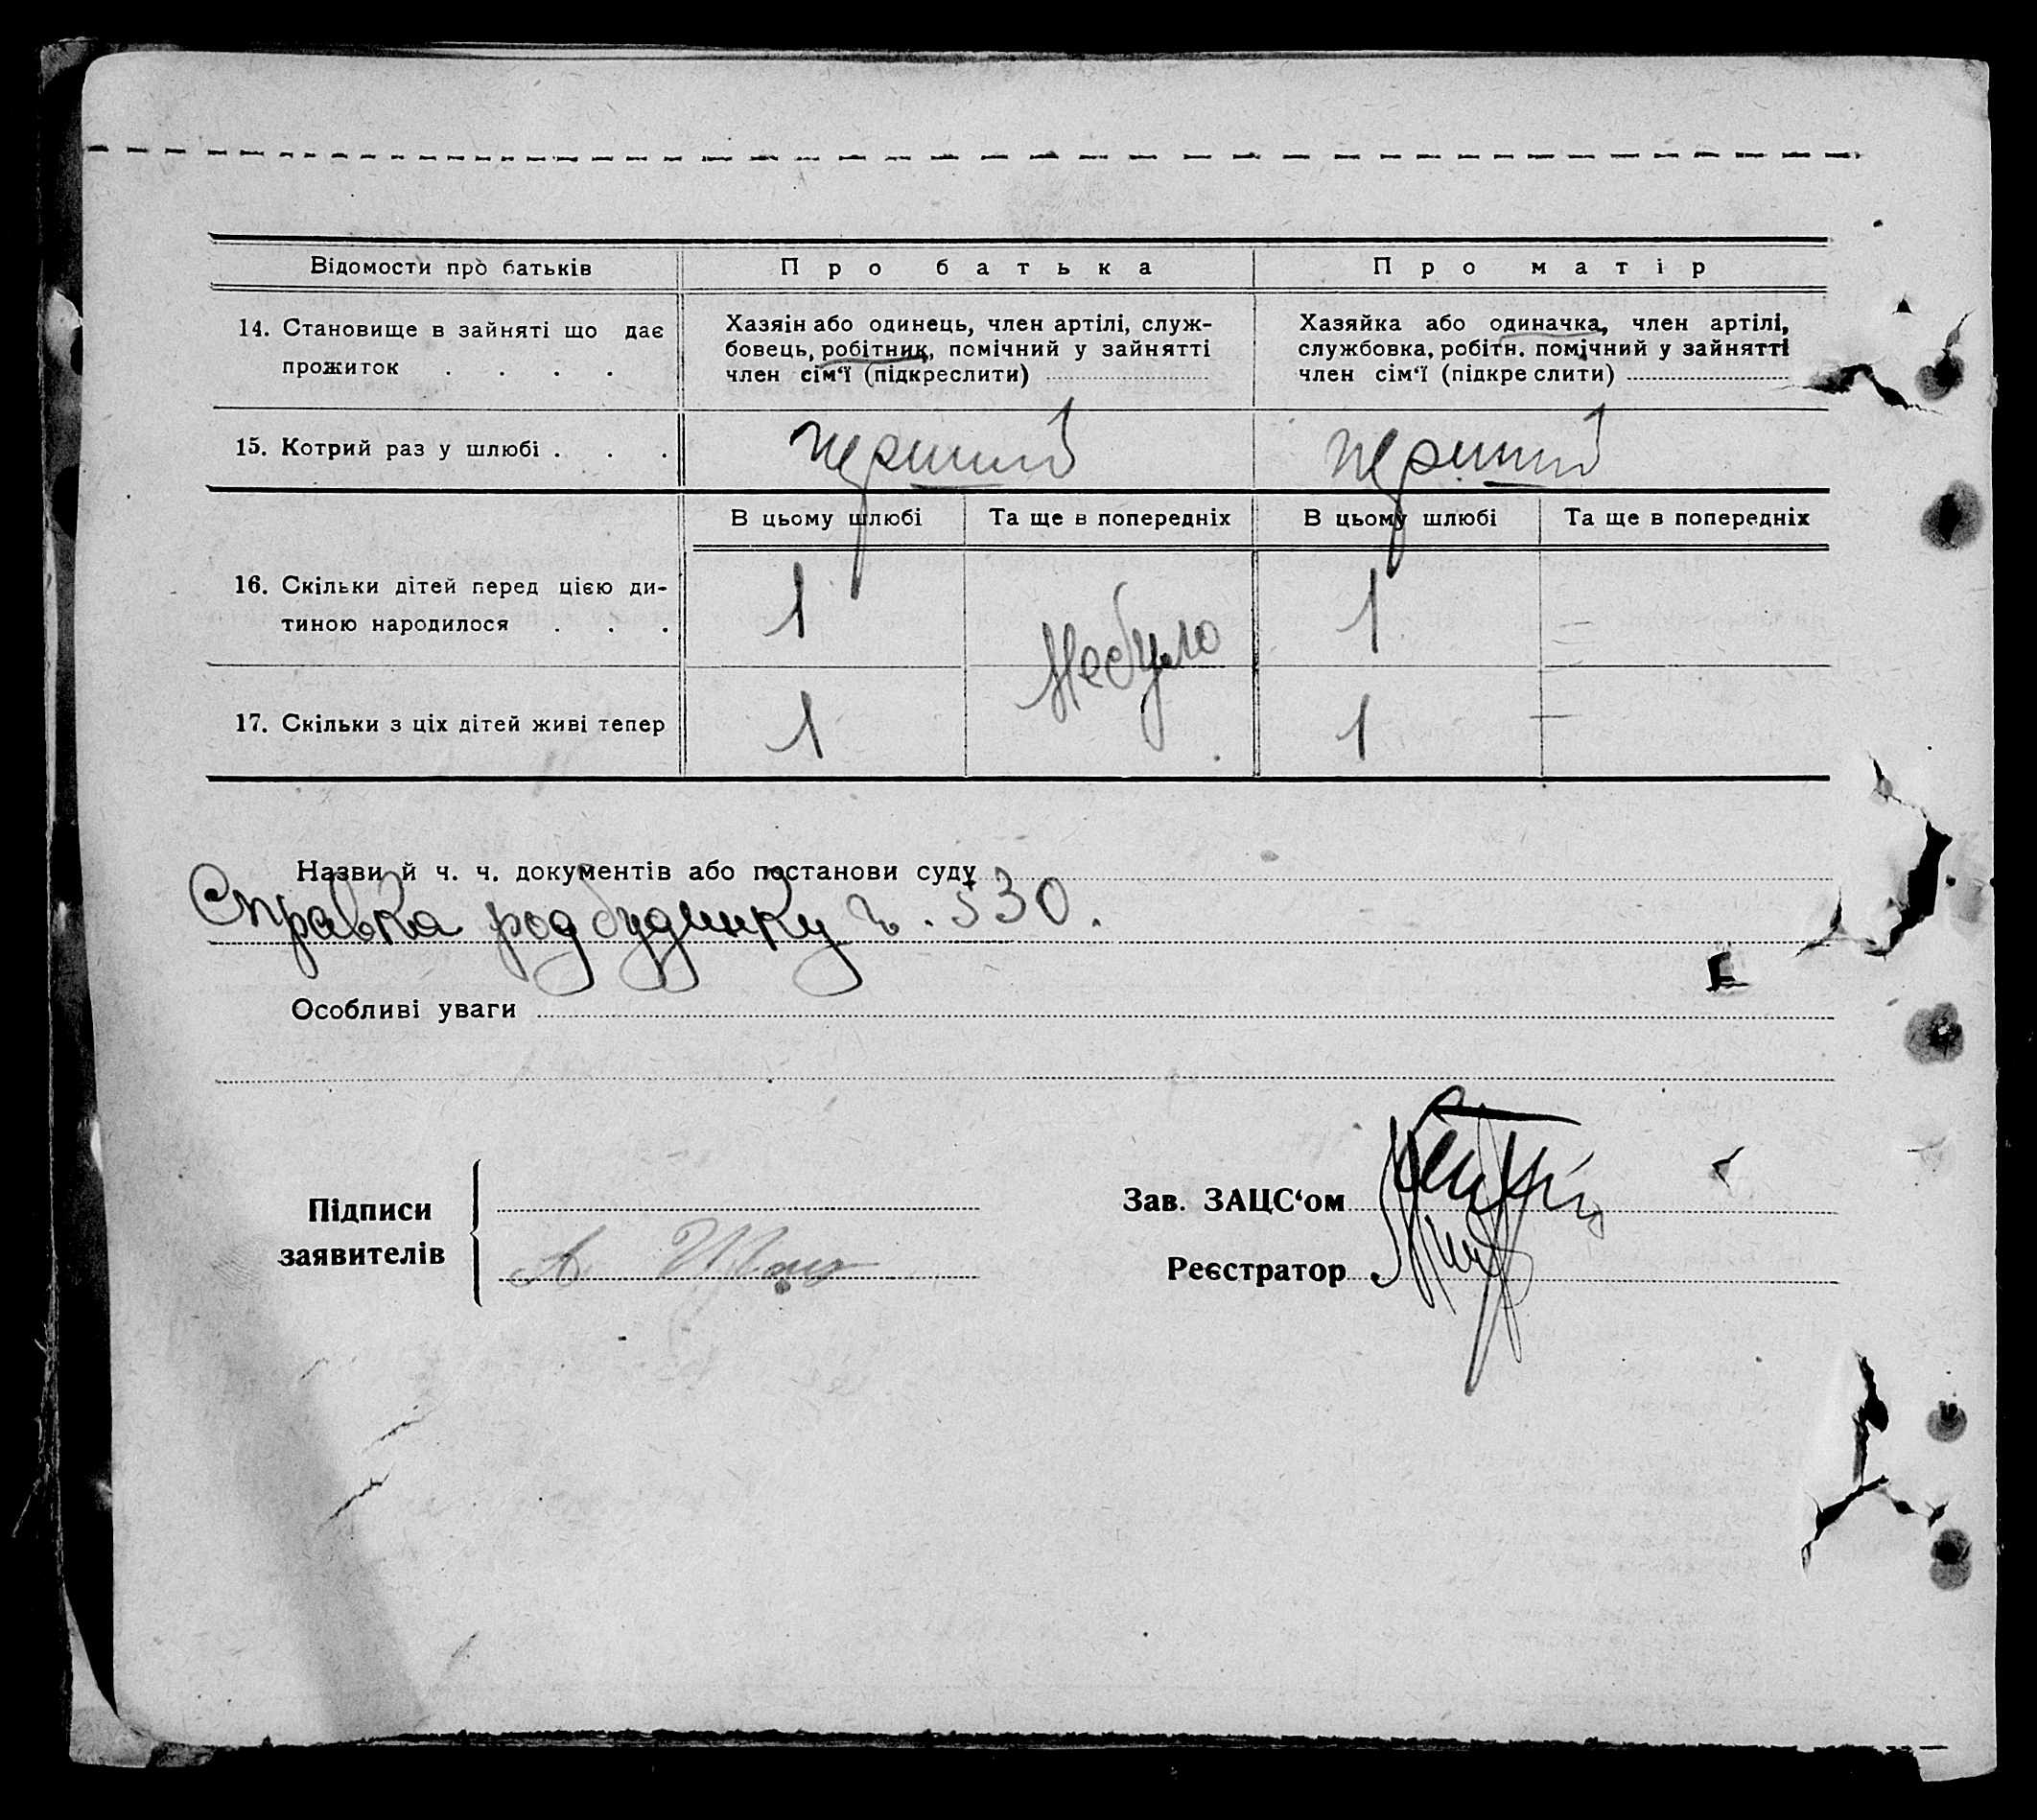 Відомости про батьків
Про батька
Про матір
14. Становище в зайняті що дає
прожиток . . . .
Хазяін або одинець, член артілі, служ-
бовець, робітник, помічний у зайнятті
член сім‘ї (підкреслити)
Хазяйка або одиначка, член артілі,
службовка, робітн. помічний у зайнятті
член сім‘ї (підкреслити)
15. Котрий раз у шлюбі . . .
перший
перший
В цьому шлюбі
Та ще в попередніх
В цьому шлюбі
Та ще в попередніх
16. Скільки дітей перед цією ди-
тиною народилося . . .
1
Небуло
1
—
17. Скільки з ціх дітей живі тепер
1
1
—
Назви й ч. ч. документів або постанови суду
Справка родбудинку ч. 530.
Особливі уваги
Підписи
заявителів
А
Зав. ЗАЦС‘ом
Реєстратор